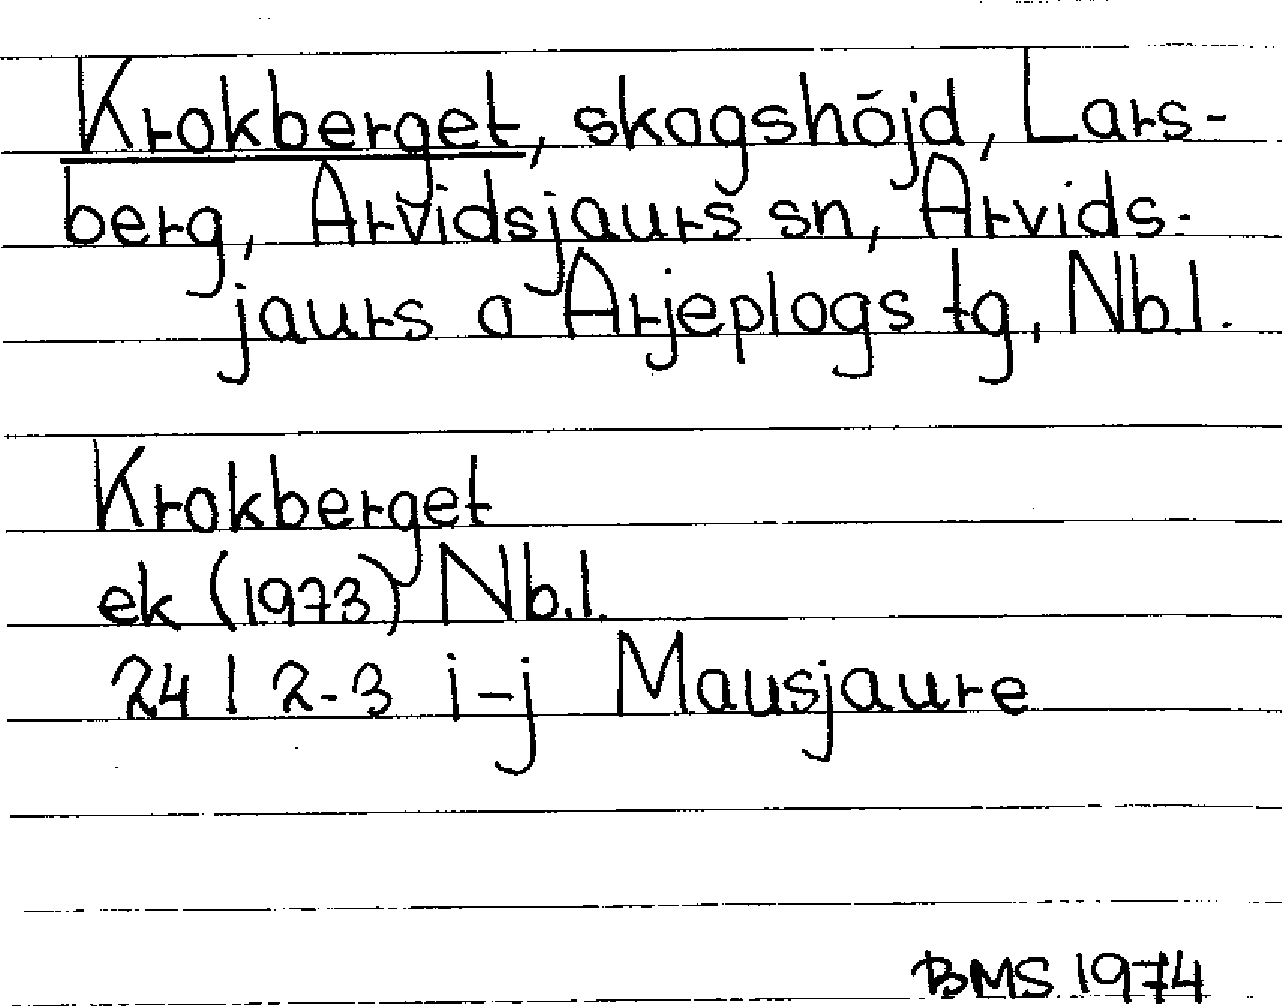 Krokberget, skogshöjd, Lars-
berg, Arvidsjaurs sn, Arvids-
jaurs o Arjeplogs tg, Nb.l.
Krokberget
ek (1973) Nb.l.
24 I 2-3 i-j Mausjaure
BMS 1974